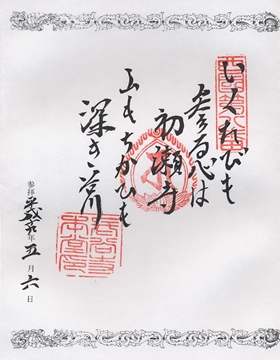 いくたびも
参る心は
初瀬寺
山もちかひも
深き谷川
参拝平成
年五月六日